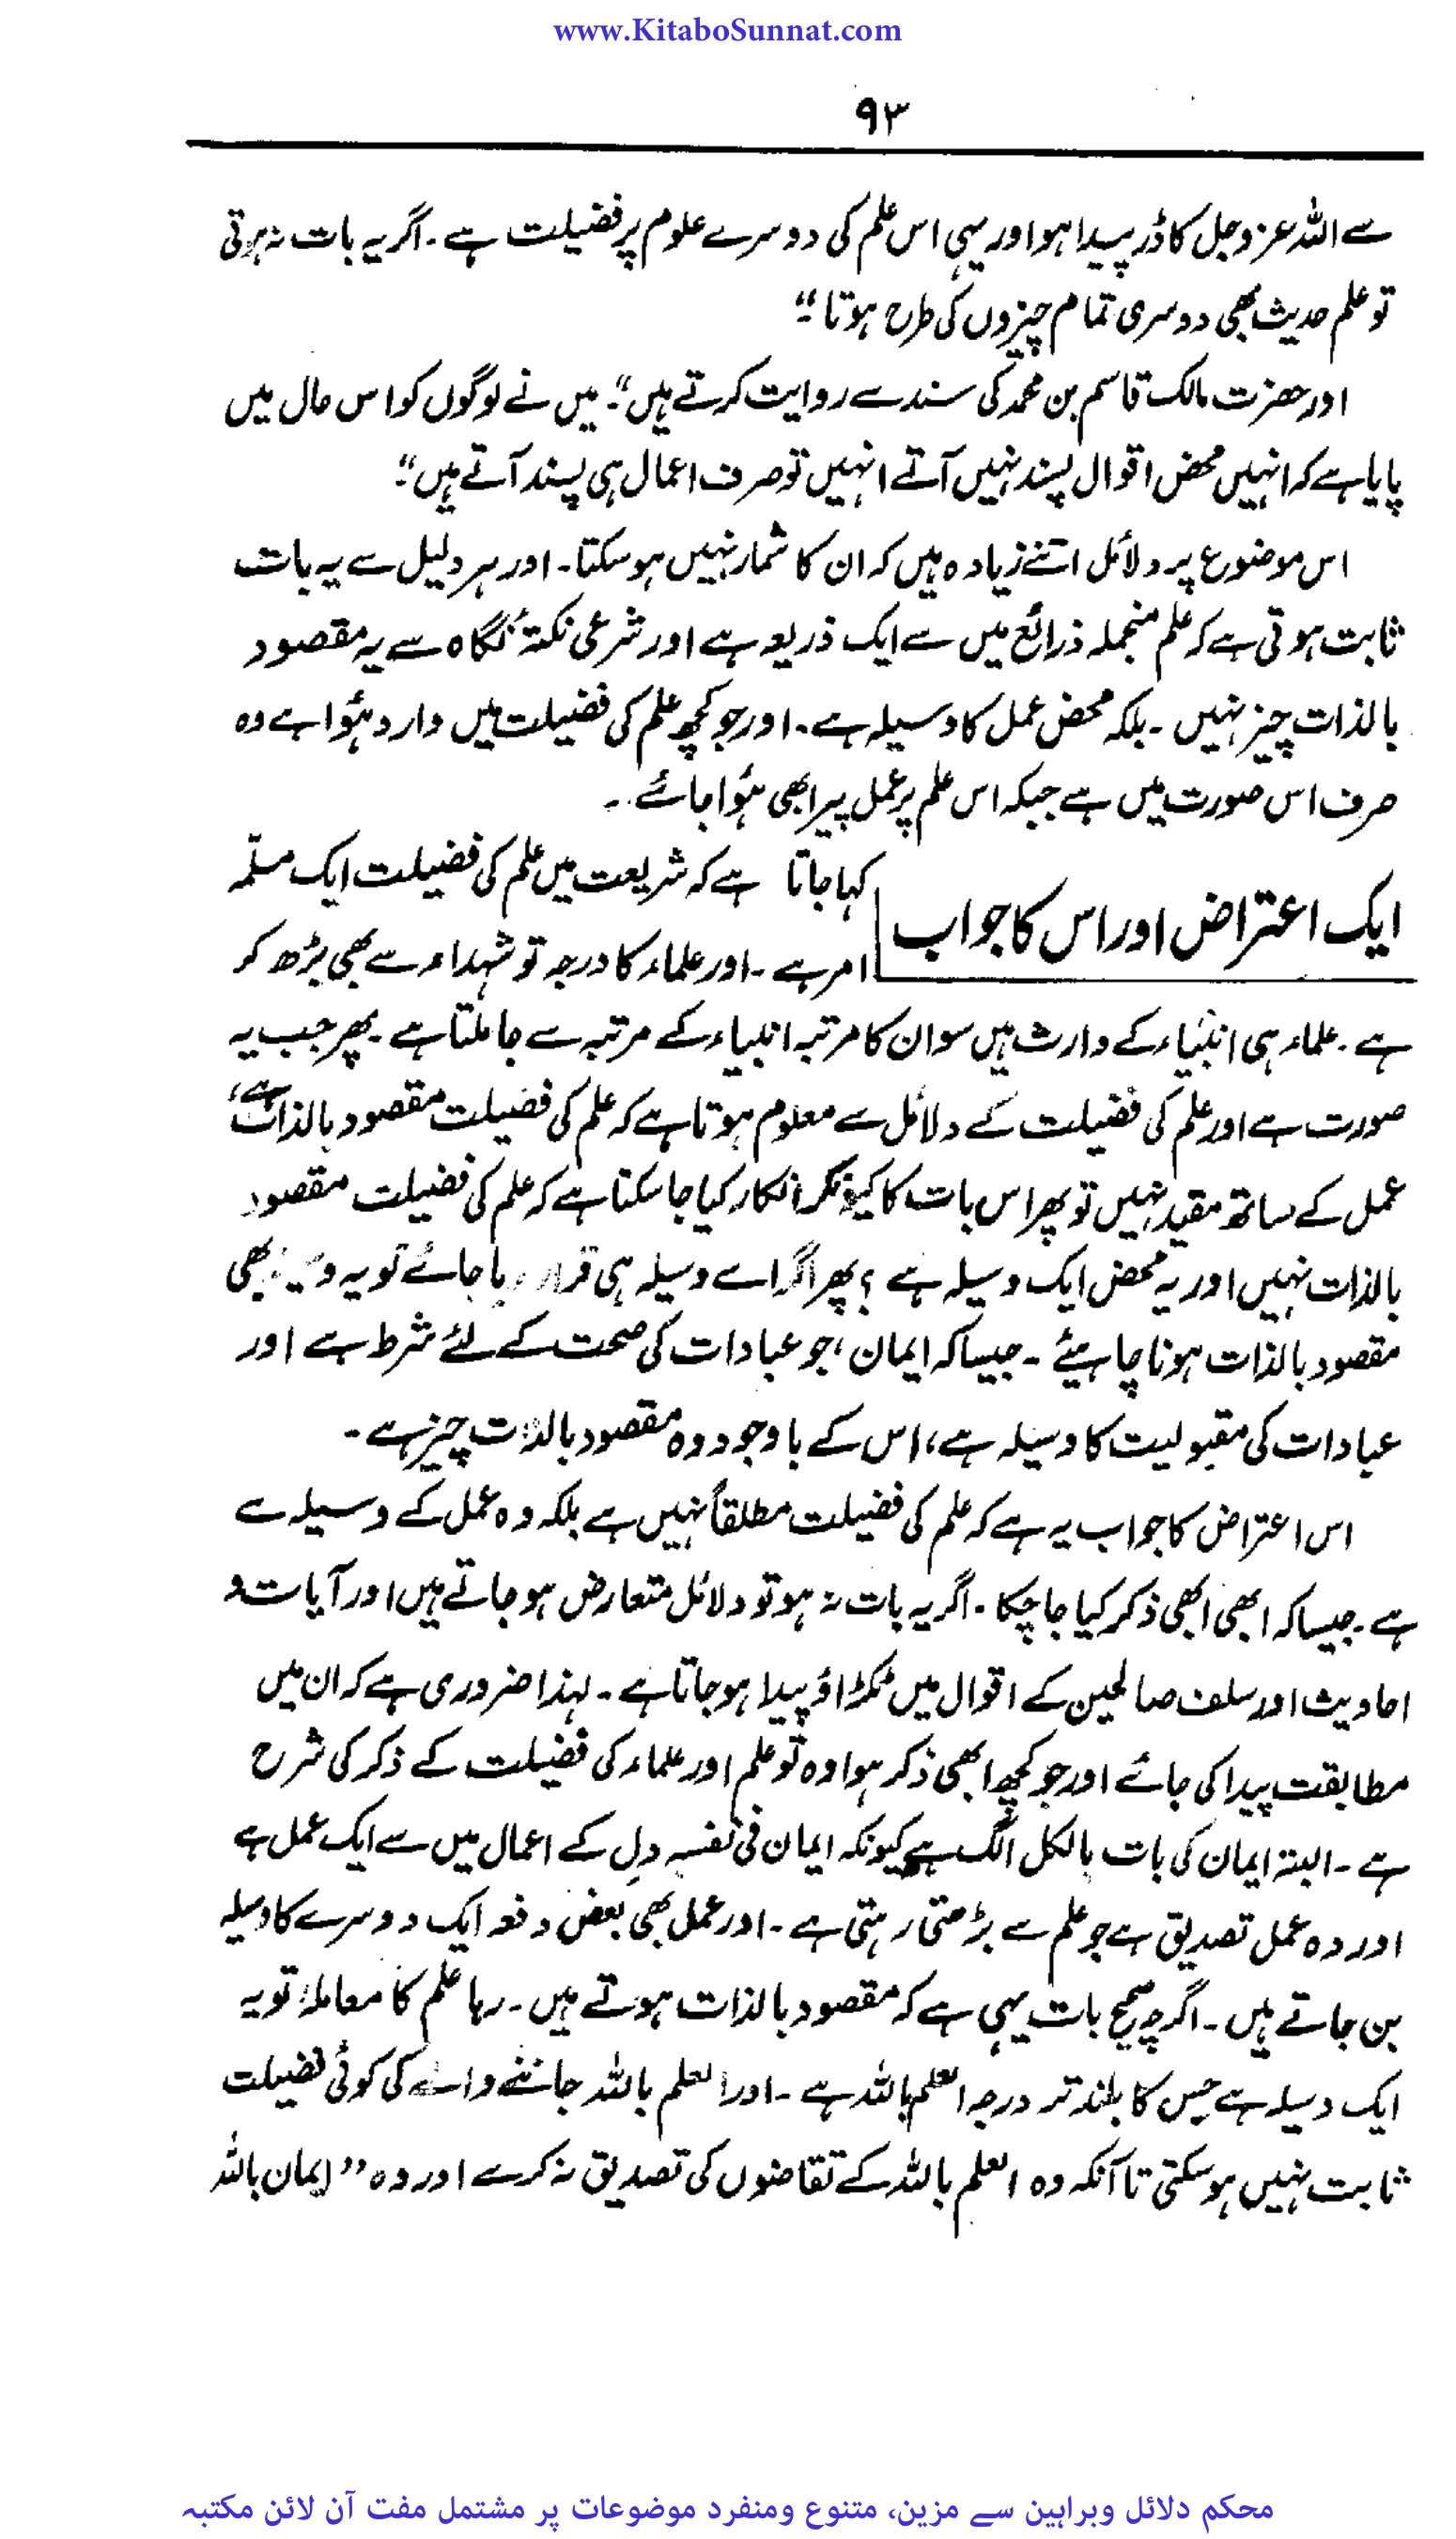 www.KitaboSunnat.com
۹۳
سے اللہ عزوجل کا ڈر پیدا ہو اور یہی اس علم کی دوسرے علوم پر فضیلت ہے۔ اگر یہ بات نہ ہوتی
تو علم حدیث بھی دوسری تمام چیزوں کی طرح ہوتا۔“
اور حضرت مالک قاسم بن محمد کی سند سے روایت کرتے ہیں ”۔ میں نے لوگوں کو اس حال میں
پایا ہے کہ انہیں محض اقوال پسند نہیں آتے انہیں تو صرف اعمال ہی پسند آتے ہیں۔“
اس موضوع پر دلائل اتنے زیادہ ہیں کہ ان کا شمار نہیں ہو سکتا۔ اور ہر دلیل سے یہ بات
ثابت ہوتی ہے کہ علم منجملہ ذرائع میں سے ایک ذریعہ ہے اور شرعی نکتۂ نگاہ سے یہ مقصود
بالذات چیز نہیں۔ بلکہ محض عمل کا وسیلہ ہے۔ اور جو کچھ علم کی فضیلت میں وارد ہؤا ہے وہ
صرف اس صورت میں ہے جبکہ اس علم پر عمل پیرا بھی ہؤا جائے۔
ایک اعتراض اور اس کا جواب
کہا جاتا ہے کہ شریعت میں علم کی فضیلت ایک مسلّمہ
امر ہے۔ اور علماء کا درجہ تو شہداء سے بھی بڑھ کر
ہے۔ علماء ہی انبیاء کے وارث ہیں سو ان کا مرتبہ انبیاء کے مرتبہ سے جا ملتا ہے۔ پھر جب یہ
صورت ہے اور علم کی فضیلت کے دلائل سے معلوم ہوتا ہے کہ علم کی فضیلت مقصود بالذات ہے،
عمل کے ساتھ مقید نہیں تو پھر اس بات کا کیونکر انکار کیا جا سکتا ہے کہ علم کی فضیلت مقصود
بالذات نہیں اور یہ محض ایک وسیلہ ہے؟ پھر اگر اسے وسیلہ ہی قرار دیا جائے تو یہ وسیلہ بھی
مقصود بالذات ہونا چاہیئے۔ جیسا کہ ایمان، جو عبادات کی صحت کے لئے شرط ہے اور
عبادات کی مقبولیت کا وسیلہ ہے، اس کے باوجود وہ مقصود بالذات چیز ہے۔
اس اعتراض کا جواب یہ ہے کہ علم کی فضیلت مطلقاً نہیں ہے بلکہ وہ عمل کے وسیلہ سے
ہے۔ جیسا کہ ابھی ابھی ذکر کیا جا چکا۔ اگر یہ بات نہ ہو تو دلائل متعارض ہو جاتے ہیں اور آیات و
احادیث اور سلف صالحین کے اقوال میں ٹکڑاؤ پیدا ہو جاتا ہے۔ لہذا ضروری ہے کہ ان میں
مطابقت پیدا کی جائے اور جو کچھ ابھی ذکر ہوا وہ تو علم اور علماء کی فضیلت کے ذکر کی شرح
ہے۔ البتہ ایمان کی بات بالکل الگ ہے کیونکہ ایمان فی نفسہٖ دل کے اعمال میں سے ایک عمل ہے
اور وہ عمل تصدیق ہے جو علم سے بڑھتی رہتی ہے۔ اور عمل بھی بعض دفعہ ایک دوسرے کا وسیلہ
بن جاتے ہیں۔ اگرچہ صحیح بات یہی ہے کہ مقصود بالذات ہوتے ہیں۔ رہا علم کا معاملہ؛ تو یہ
ایک وسیلہ ہے جس کا بلند تر درجہ العلم باللہ ہے۔ اور العلم باللہ جاننے والے کی کوئی فضیلت
ثابت نہیں ہو سکتی تا آنکہ وہ العلم باللہ کے تقاضوں کی تصدیق نہ کرے اور وہ ”ایمان باللہ
محکم دلائل وبراہین سے مزین، متنوع ومنفرد موضوعات پر مشتمل مفت آن لائن مکتبہ